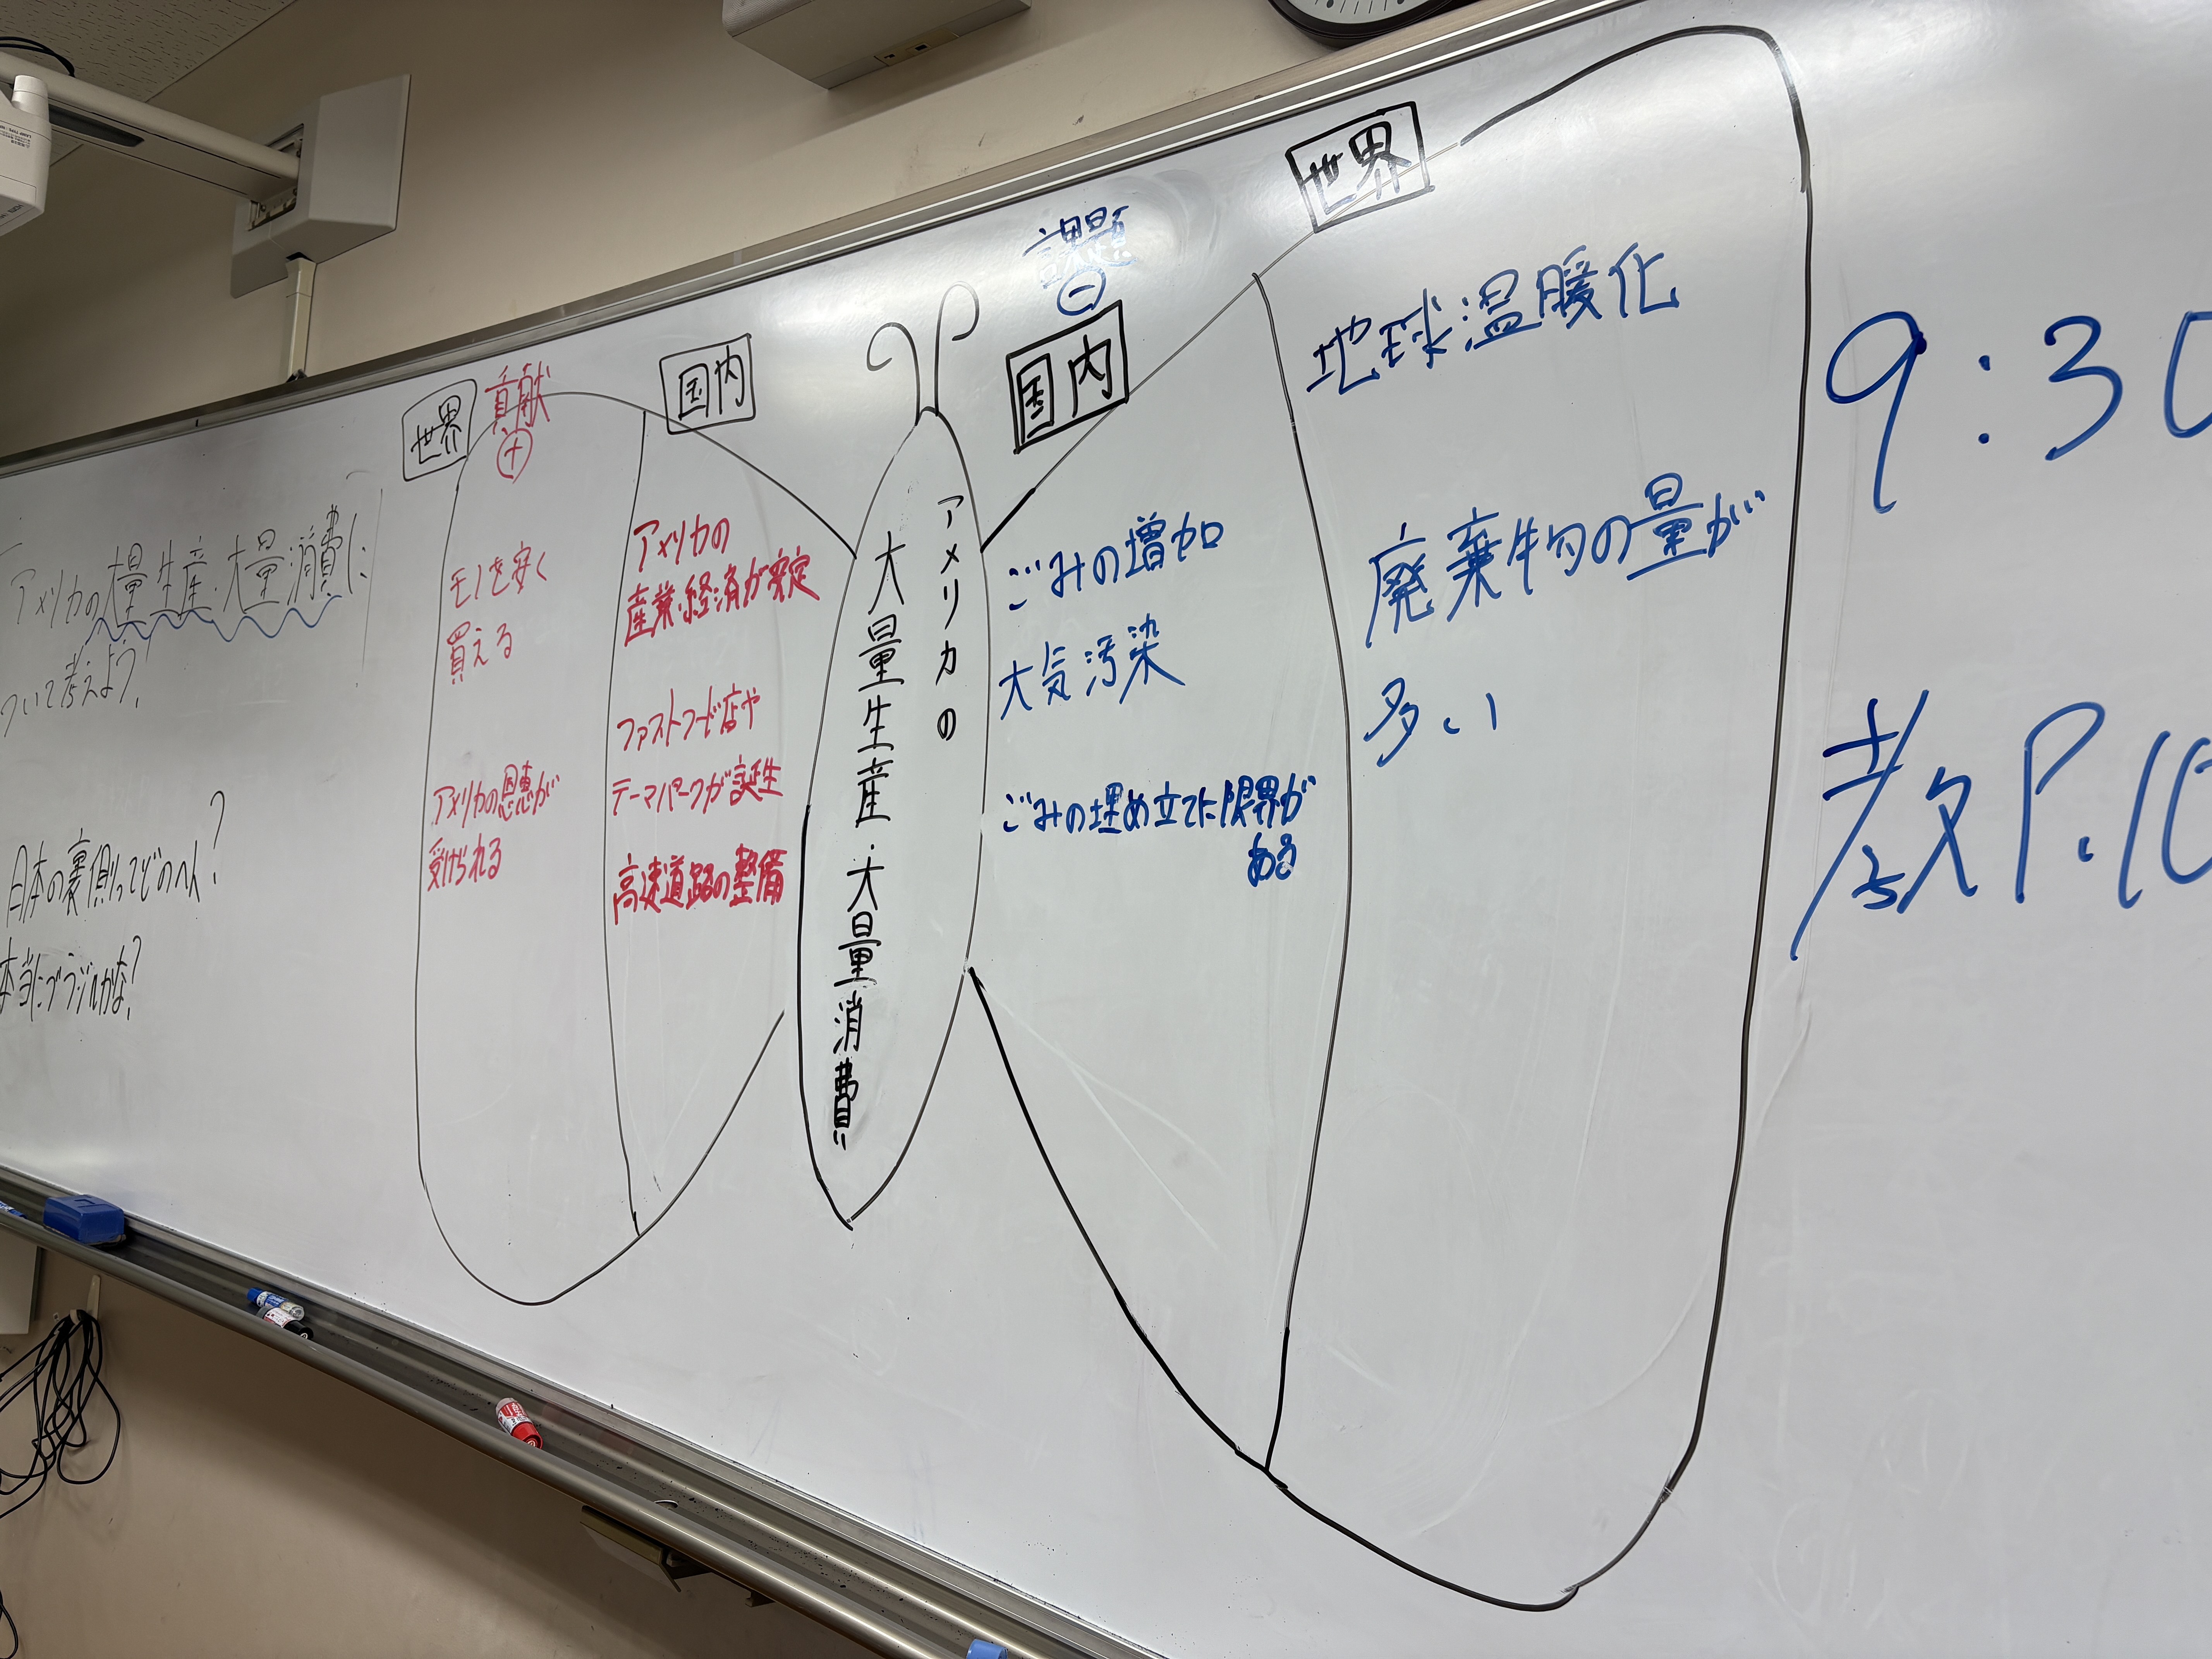 アメリカの大量生産・大量消費に
ついて考えよう!
日本の裏側ってどのへん?
本当にブラジルかな?
世界
貢献
+
モノを安く
買える
アメリカの恩恵が
受けられる
国内
アメリカの
産業・経済が安定
ファストフード店や
テーマパークが誕生
高速道路の整備
アメリカの
大量生産・大量消費
課題
-
国内
ごみの増加
大気汚染
ごみの埋め立てに限界が
ある
世界
地球温暖化
廃棄物の量が
多い
9:30
教P.10